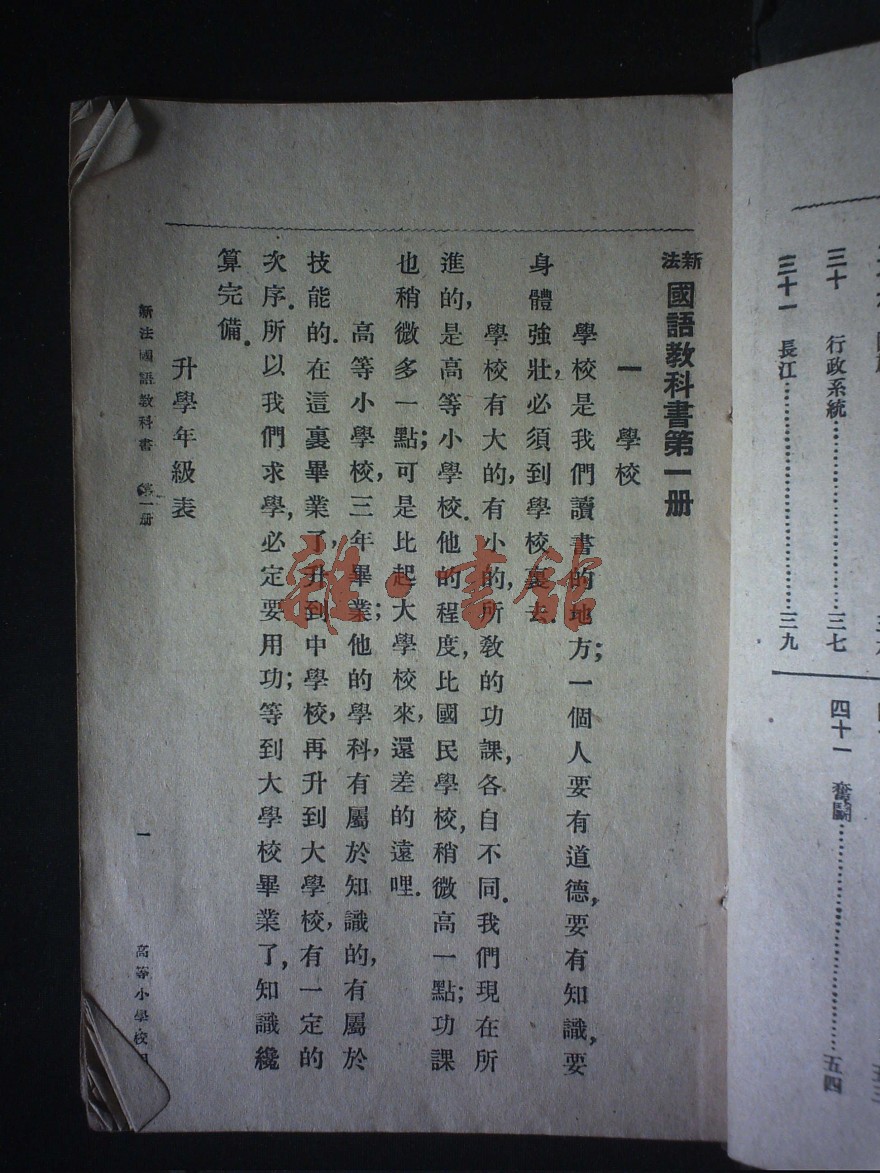 三十 行政系統……三七
三十一 長江……三九
四十一 奮鬪……五四
新法國語教科書第一册
一 學校
學校是我們讀書的地方；一個人要有道德，要有知識，要
身體強壯，必須到學校裏去．
學校有大的，有小的，所敎的功課，各自不同．我們現在所
進的，是高等小學校．他的程度，比國民學校，稍微高一點；功課
也稍微多一點；可是比起大學校來，還差的遠哩．
高等小學校，三年畢業；他的學科，有屬於知識的，有屬於
技能的．在這裏畢業了，升到中學校，再升到大學校，有一定的
次序．所以我們求學，必定要用功；等到大學校畢業了，知識纔
算完備．
升學年級表
新法國語教科書 第一册
一
高等小學校用
雜·書館